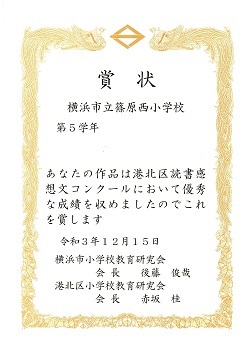 賞状
横浜市立篠原西小学校
第５学年
あなたの作品は港北区読書感
想文コンクールにおいて優秀
な成績を収めましたのでこれ
を賞します
令和３年１２月１５日
横浜市小学校教育研究会
会長　後藤　俊哉
港北区小学校教育研究会
会長　赤坂　桂